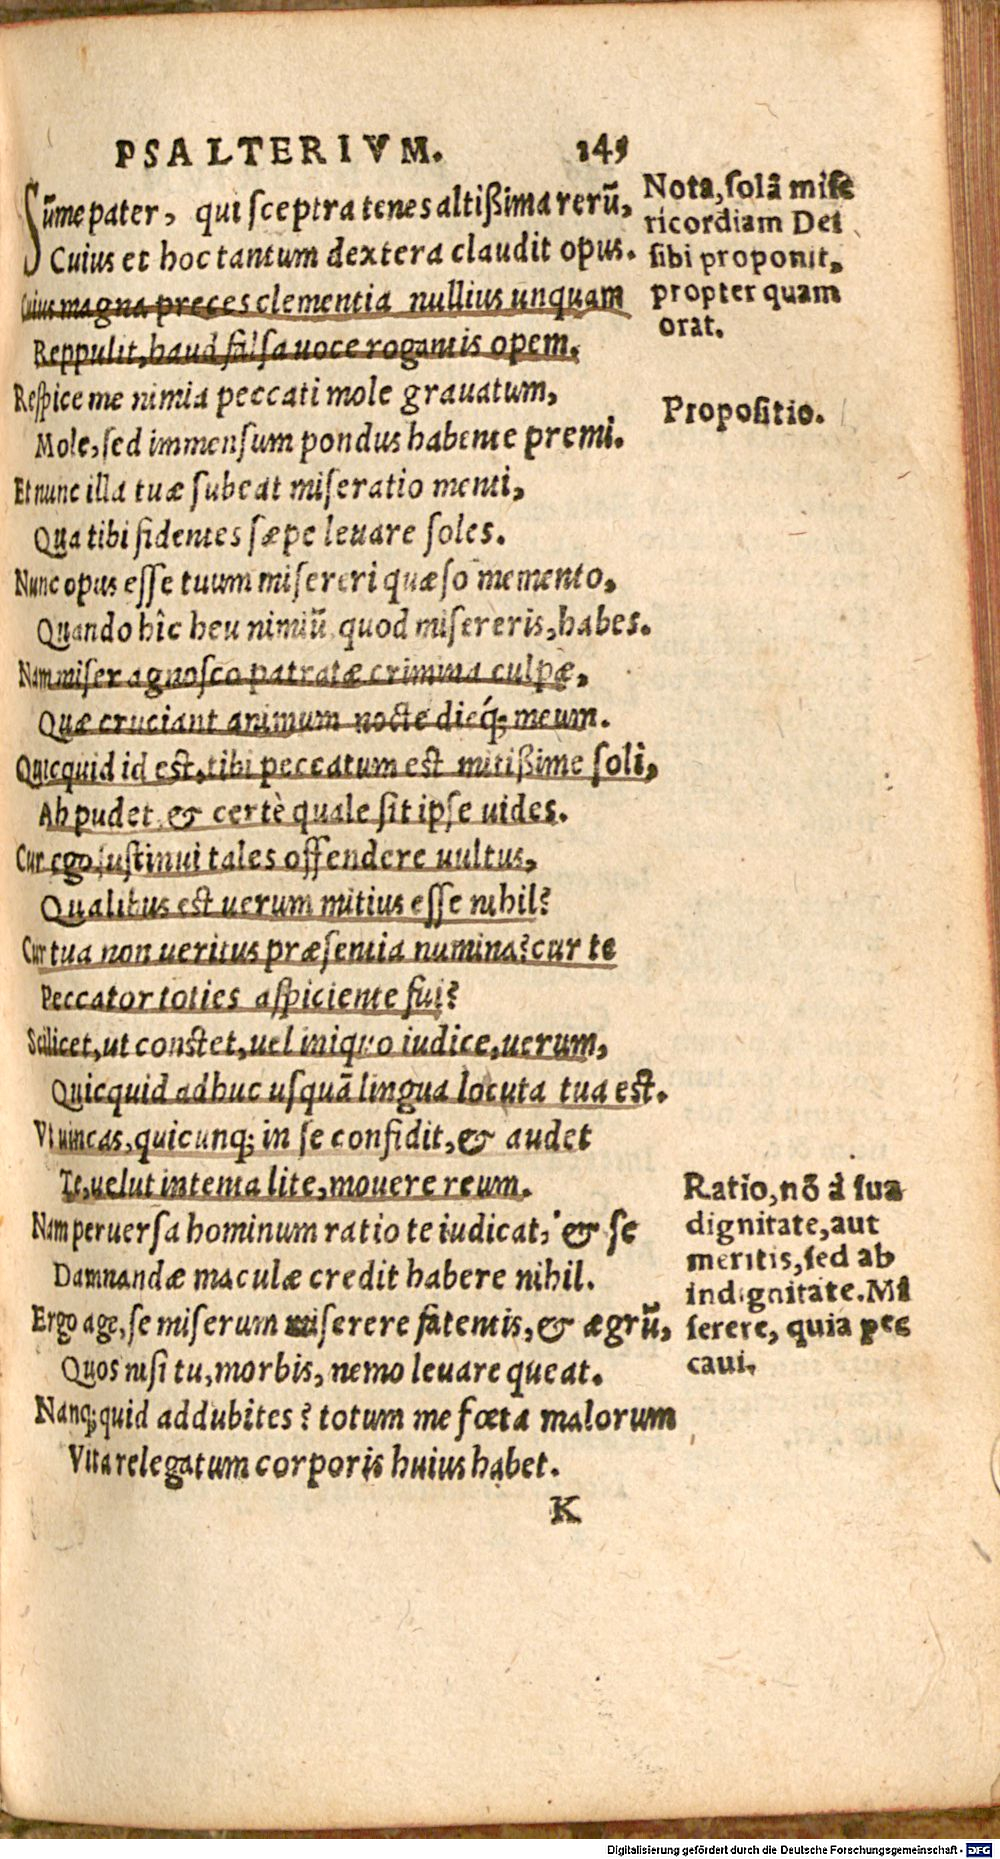 PSALTERIVM. 145
Sūme pater, qui sceptra tenes altißima rerū,
Cuius et hoc tantum dextera claudit opus.
Cuius magna preces clementia nullius unquam
Reppulit, haud falsa uoce rogantis opem.
Respice me nimia peccati mole grauatum,
Mole, sed immensum pondus habente premi.
Et nunc illa tuæ subeat miseratio menti,
Qua tibi fidentes sæpe leuare soles.
Nunc opus esse tuum misereri quæso memento,
Quando hîc heu nimiū quod misereris, habes.
Nam miser agnosco patratæ crimina culpæ,
Quæ cruciant animum nocte dieq́; meum.
Quicquid id est, tibi peccatum est mitißime soli,
Ah pudet, & certè quale sit ipse uides.
Cur ego sustinui tales offendere uultus,
Qualibus est uerum mitius esse nihil?
Cur tua non ueritus præsentia numina? cur te
Peccator toties aspiciente fui?
Scilicet, ut constet, uel iniquo iudice, uerum,
Quicquid adhuc usquā lingua locuta tua est.
Vt uincas, quicunq; in se confidit, & audet
Te, uelut intenta lite, mouere reum.
Nam peruersa hominum ratio te iudicat, & se
Damnandæ maculæ credit habere nihil.
Ergo age, se miserum miserere fatentis, & ægrū,
Quos nisi tu, morbis, nemo leuare queat.
Nanq; quid addubites? totum me fœta malorum
Vita relegatum corporis huius habet.
K
Nota, solā mise
ricordiam Dei
sibi proponit,
propter quam
orat.
Propositio.
Ratio, nō à sua
dignitate, aut
meritis, sed ab
indignitate. Mi
serere, quia pec
caui.
Digitalisierung gefördert durch die Deutsche Forschungsgemeinschaft - DFG